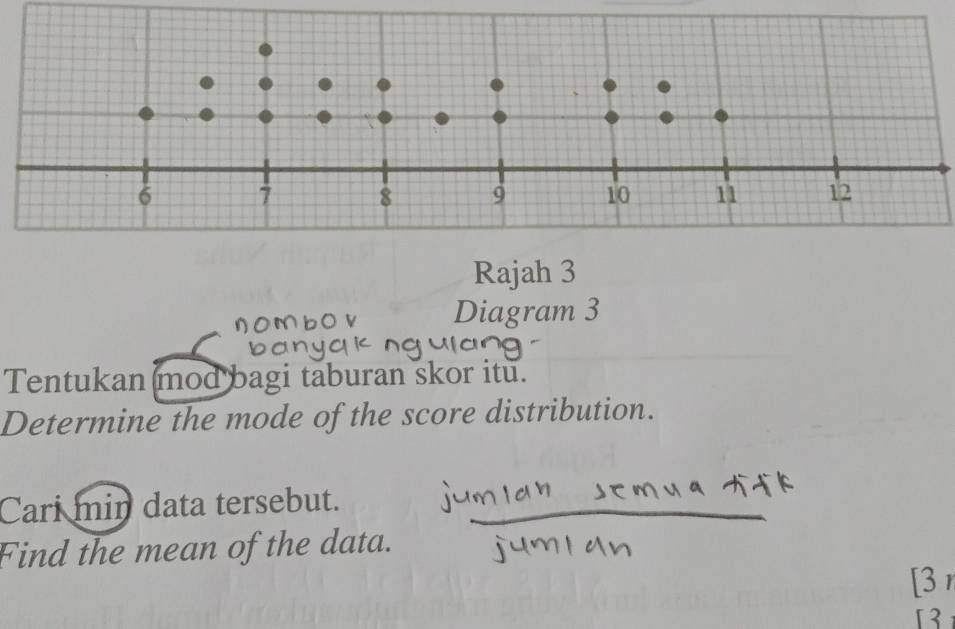 6 7 8 9 10 11 12
Rajah 3
Diagram 3
nombor
banyak ngulang-
Tentukan mod bagi taburan skor itu.
Determine the mode of the score distribution.
Cari min data tersebut.
jumlah semua titik
Find the mean of the data.
jumlah
[3
[3